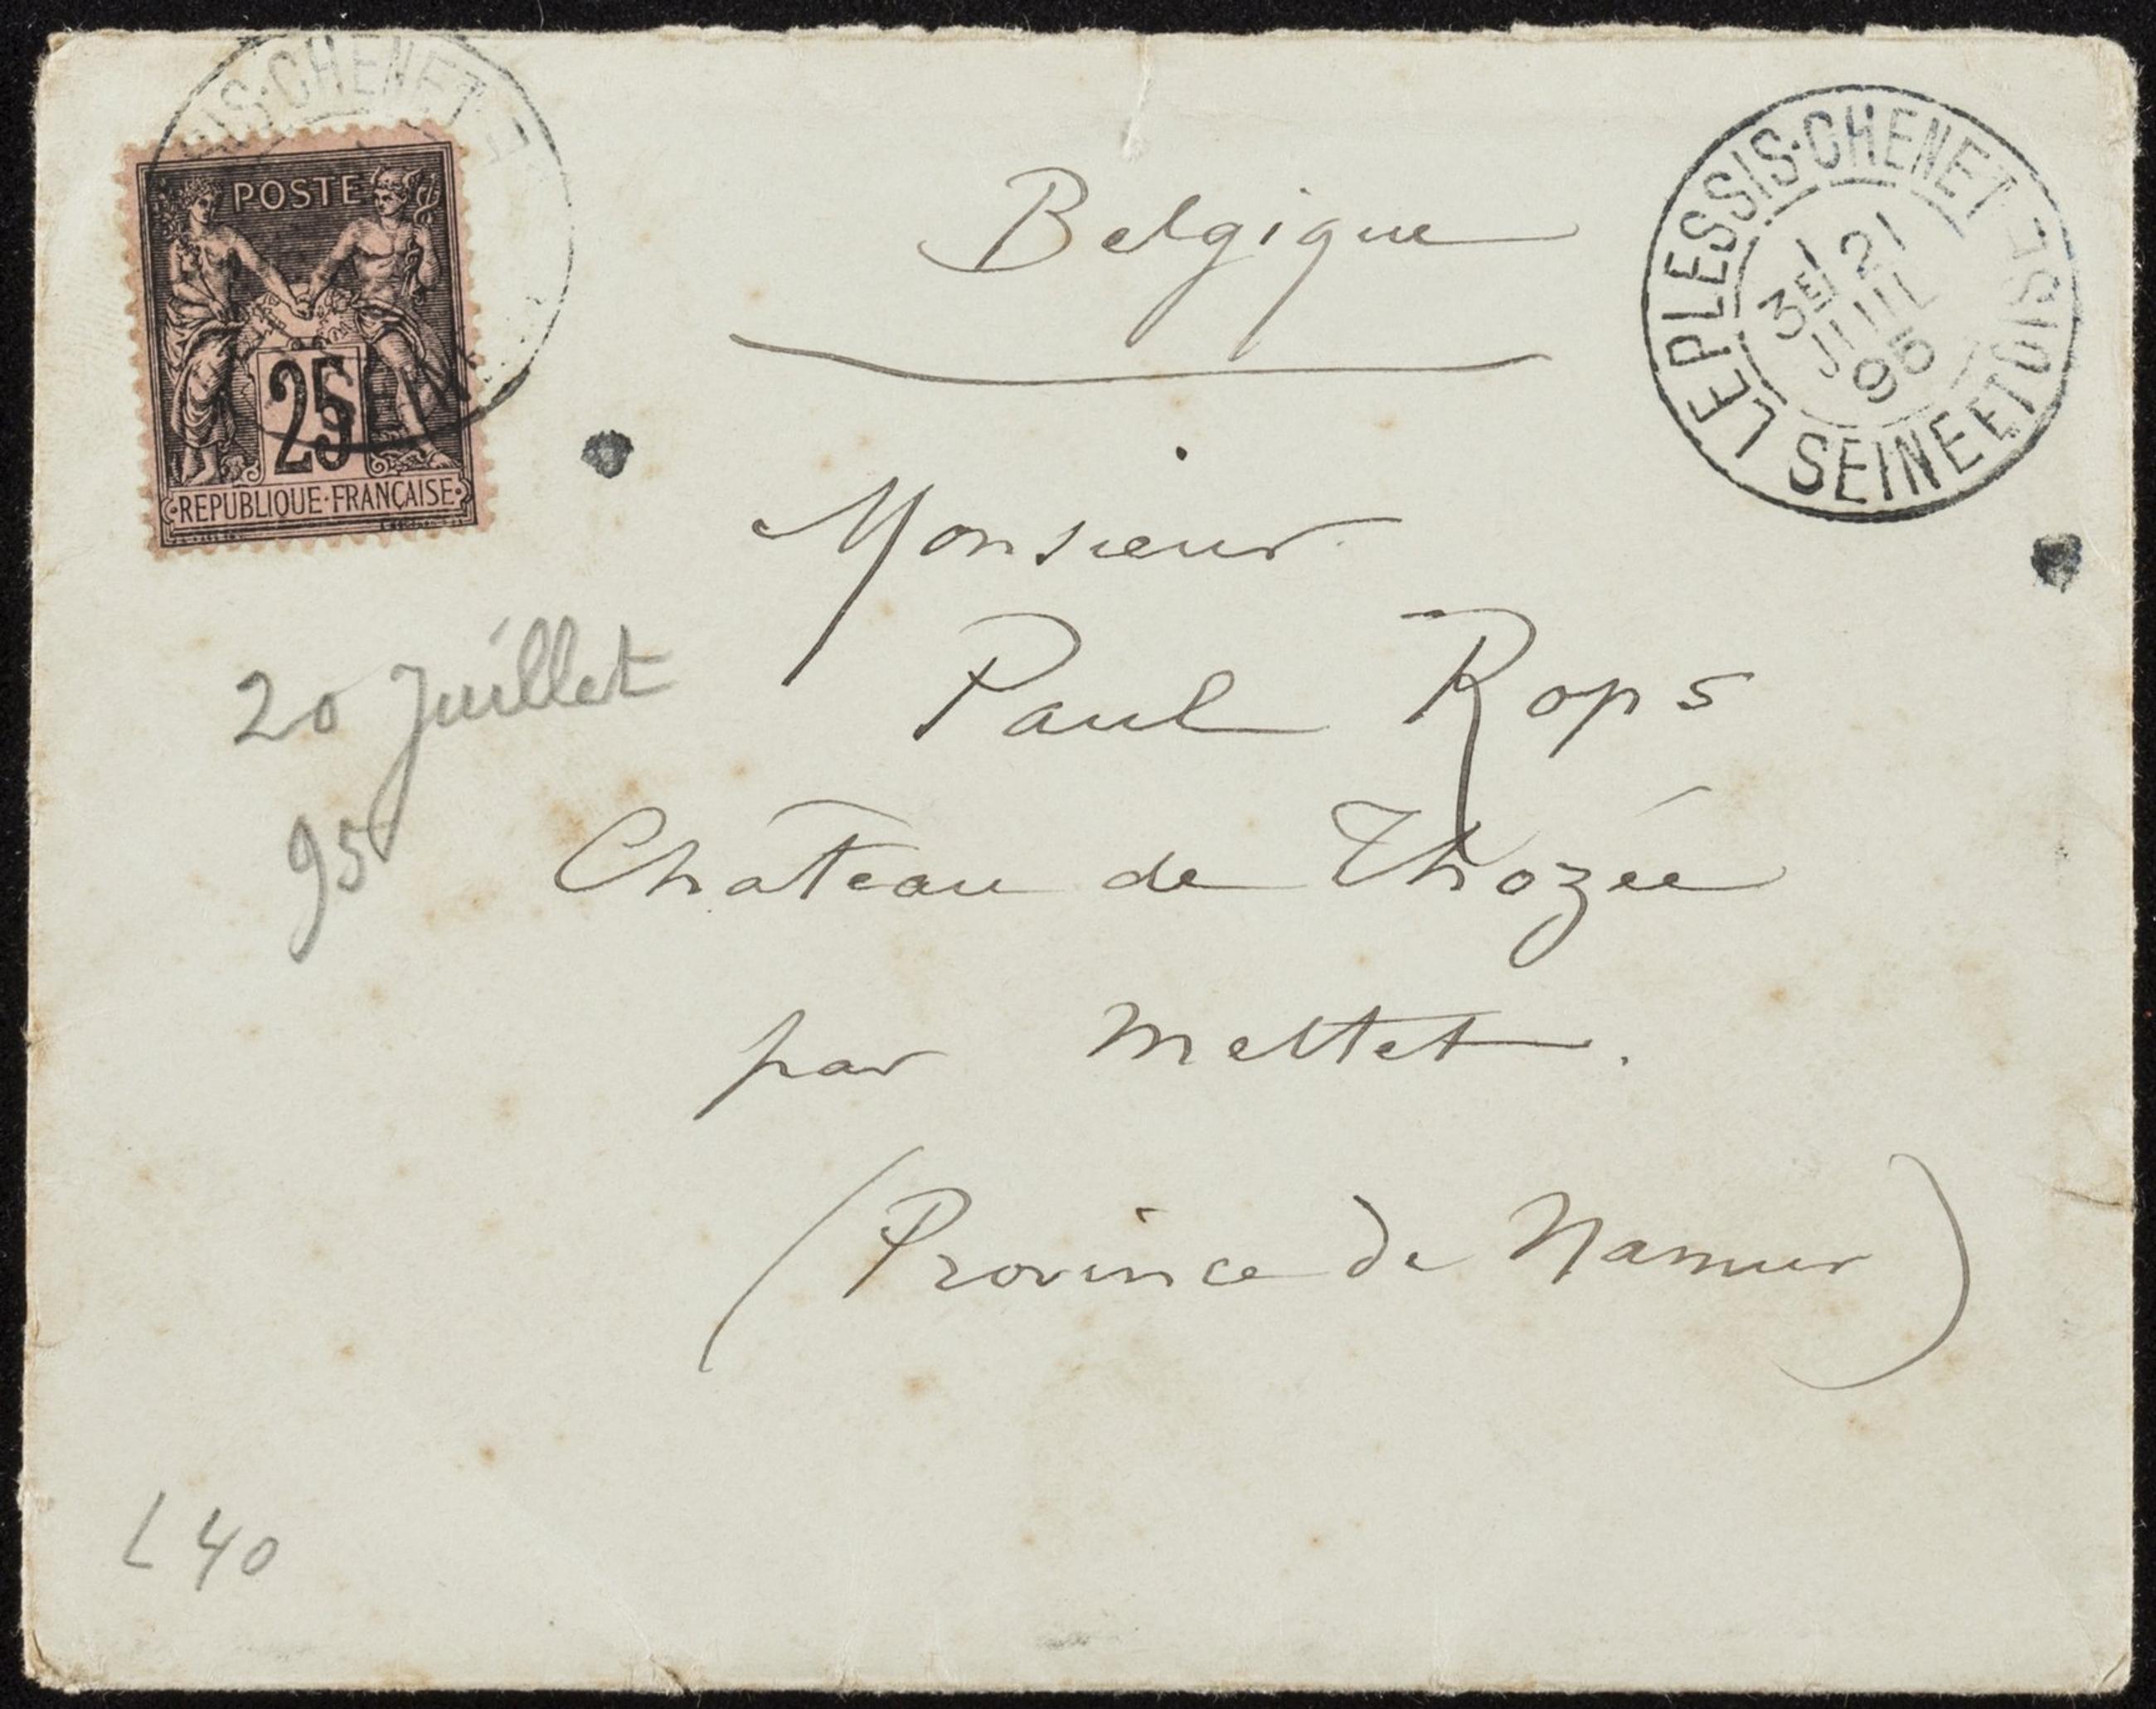 IS·CHENET
POSTE
25
·REPUBLIQUE·FRANÇAISE·
LE PLESSIS·CHENET
3E 21
JUIL
95
SEINE ET OISE
Belgique
Monsieur
Paul Rops
Château de Thozée
par Mettet.
(Province de Namur)
20 Juillet
95
L 40